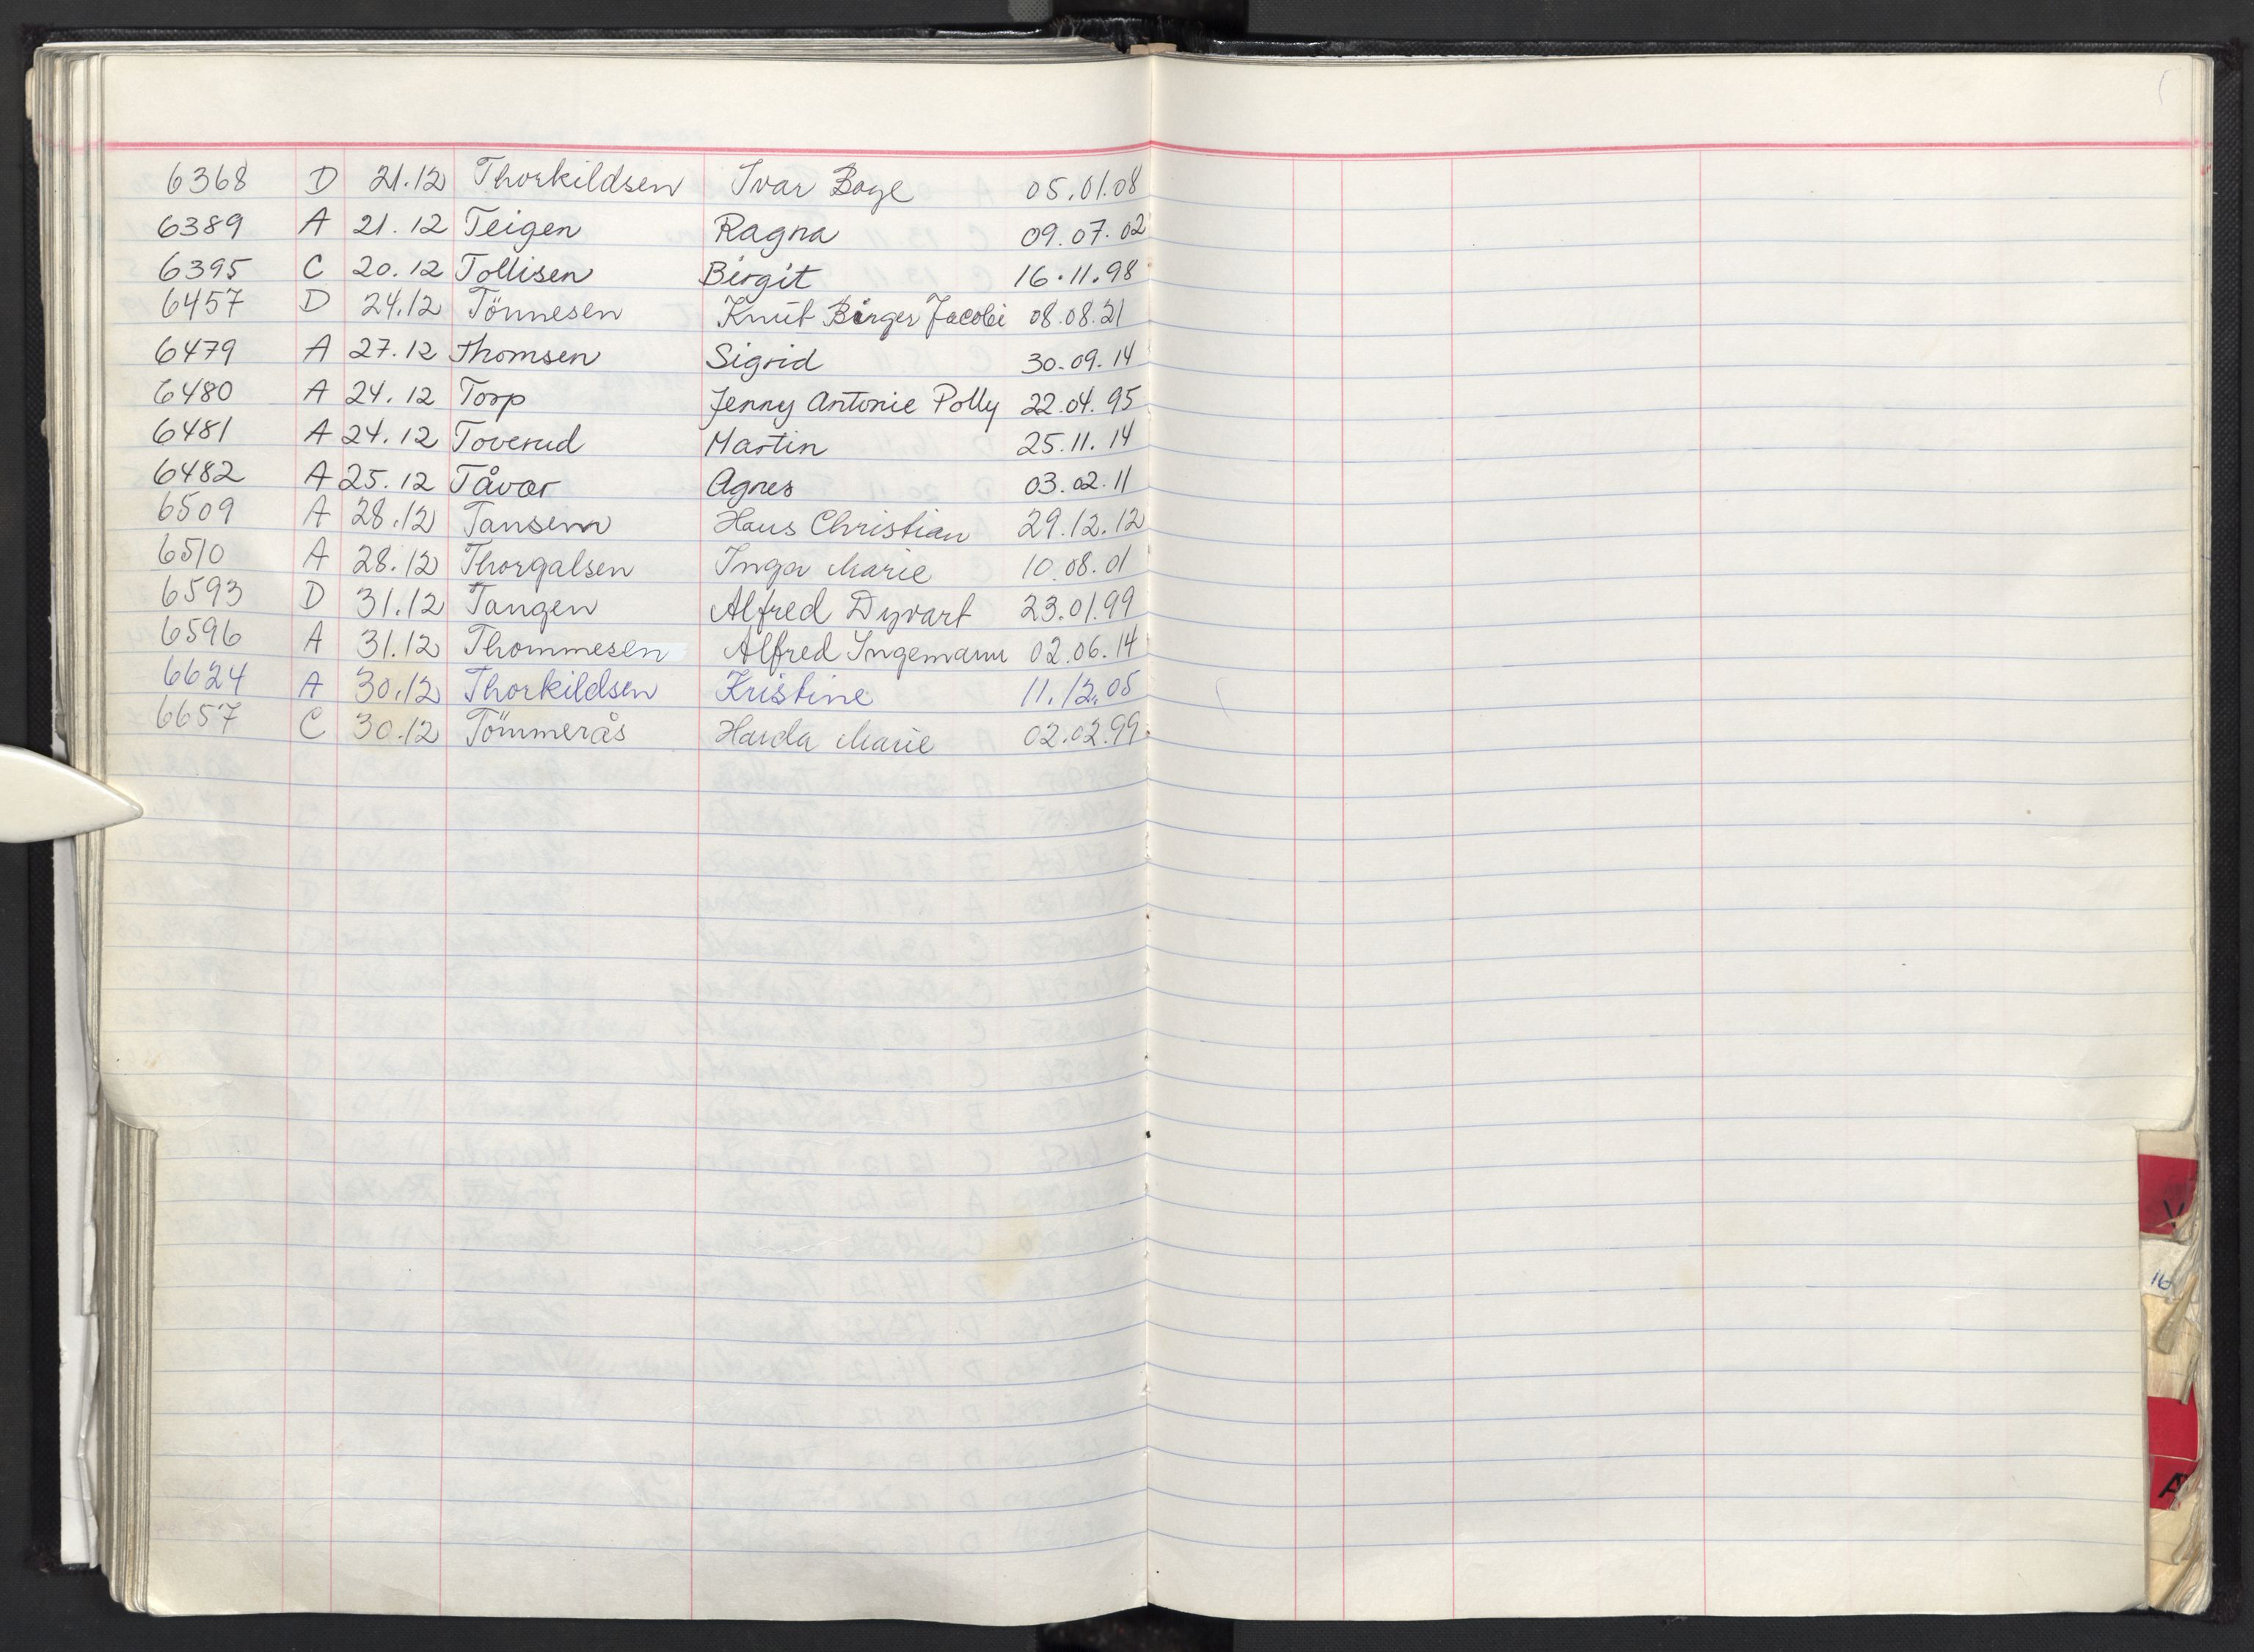 6368 D 21.12 Thorkildsen Ivar Boye 05.01.08
6389 A 21.12 Teigen Ragna 09.07.02
6395 C 20.12 Tollisen Birgit 16.11.98
6457 D 24.12 Tönnesen Knut Birger Jacobi 08.08.21
6479 A 27.12 Thomsen Sigrid 30.09.14
6480 A 24.12 Torp Jenny Antonie Polly 22.04.95
6481 A 24.12 Toverud Martin 25.11.14
6482 A 25.12 Tåvær Agnes 03.02.11
6509 A 28.12 Tansem Hans Christian 29.12.12
6510 A 28.12 Thorgalsen Inga Marie 10.08.01
6593 D 31.12 Tangen Alfred Dyvart 23.01.99
6596 A 31.12 Thommesen Alfred Ingemann 02.06.14
6624 A 30.12 Thorkildsen Kristine 11.12.05
6657 C 30.12 Tömmerås Harda Marie 02.02.99
V
16